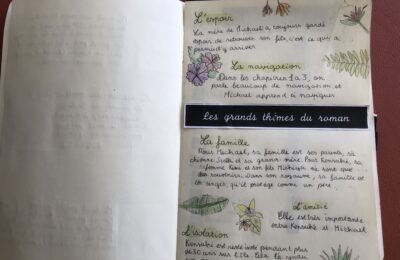 L'espoir
La mère de Michael a toujours gardé
espoir de retrouver son fils, c'est ce qui a
permis d'y arriver.
La navigation
Dans les chapitres 1 à 3, on
parle beaucoup de navigation et
Michael apprend à naviguer
Les grands thèmes du roman
La famille
Pour Michael, sa famille est ses parents, sa
chienne Stella et sa grand mère. Pour Kensuké, sa
femme Kimi et son fils Michiya ne sont que
des souvenirs. Dans son royaume, sa famille est
les singes, qu'il protège comme un père.
L'amitié
Elle est très importante
entre Kensuké et Michael.
L'isolation
Kensuké est resté isolé pendant plus
de 30 ans sur l'île. Cela l'a rendu